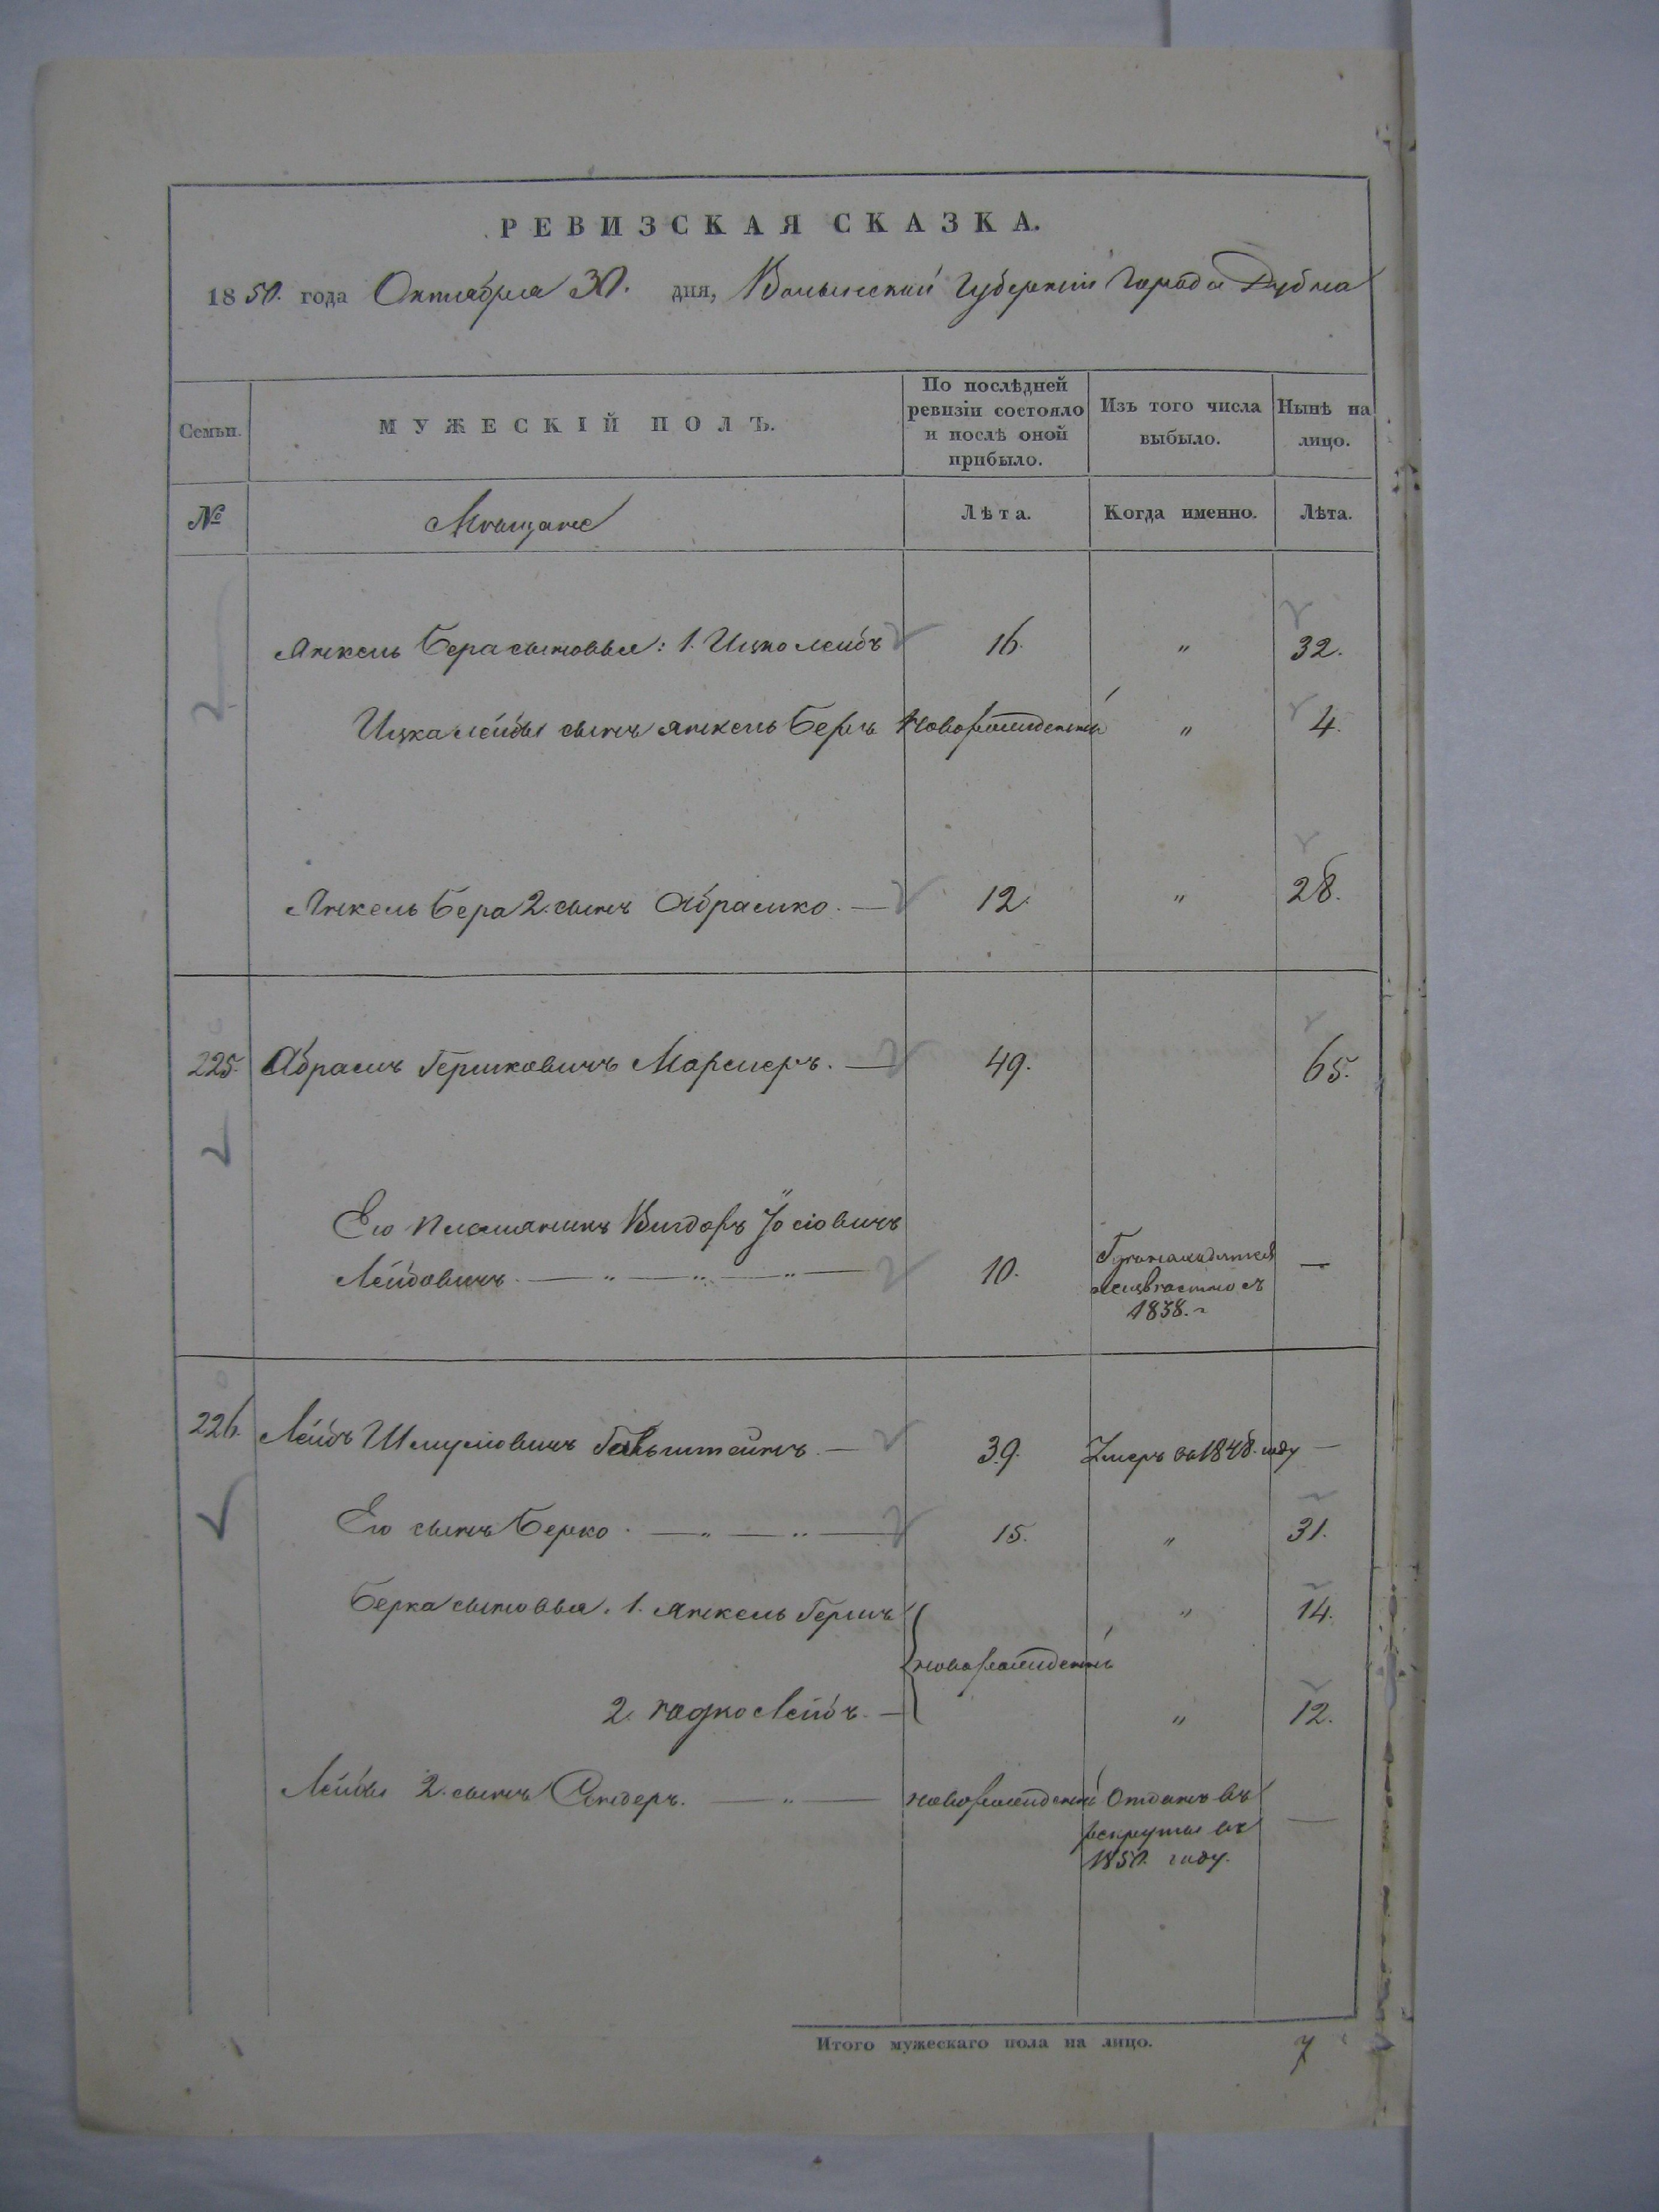 РЕВИЗСКАЯ СКАЗКА.
1850. года Октября 30. дня, Волынской Губерніи Города Дубна
Семьи. МУЖЕСКІЙ ПОЛЪ. По послѣдней ревизіи состояло и послѣ оной прибыло. Изъ того числа выбыло. Нынѣ на лицо.
№ Мѣщане Лѣта. Когда именно. Лѣта.
Янкель Бера сыновья: 1. Ицко Лейбъ 16. " 32.
Ицка Лейбы сынъ Янкель Беръ новорожденный " 4.
Янкель Бера 2. сынъ Абрамко. — 12. " 28.
225. Абрамъ Гершковичъ — 49. 65.
Его племянникъ Вигдоръ Іосіовичъ
Лейбовичъ — " — " — " — 10. неизвѣстно съ —
1838.
226. Лейбъ Шмуліовичъ — 39. Умеръ въ 1848. году —
Его сынъ Берко. — " — " — 15. " 31.
Берка сыновья. 1. Янкель Гершъ " 14.
новорожденные
2. Лейбъ. — " 12.
Лейбы 2. сынъ Сендеръ. — " — новорожденный Отданъ въ —
рекруты въ
1850. году.
Итого мужескаго пола на лицо. 7